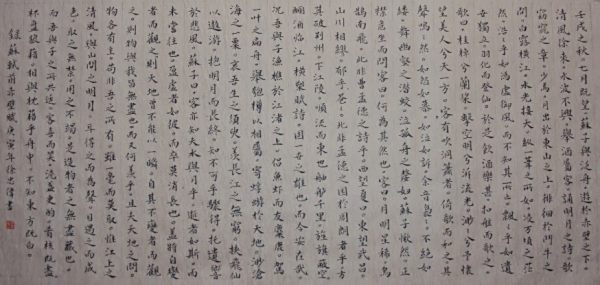 壬戌之秋七月既望蘇子與客泛舟遊於赤壁之下
清風徐來水波不興舉酒屬客誦明月之詩歌
窈窕之章少焉月出於東山之上徘徊於斗牛之
間白露橫江水光接天縱一葦之所如凌萬頃之茫
然浩浩乎如馮虛御風而不知其所止飄飄乎如遺
世獨立羽化而登仙於是飲酒樂甚扣舷而歌之
歌曰桂棹兮蘭槳擊空明兮泝流光渺渺兮予懷
望美人兮天一方客有吹洞簫者倚歌而和之其
聲嗚嗚然如怨如慕如泣如訴餘音嫋嫋不絕如
縷舞幽壑之潛蛟泣孤舟之嫠婦蘇子愀然正
襟危坐而問客曰何為其然也客曰月明星稀烏
鵲南飛此非曹孟德之詩乎西望夏口東望武昌
山川相繆鬱乎蒼蒼此非孟德之困於周郎者乎方
其破荊州下江陵順流而東也舳艫千里旌旗蔽空
釃酒臨江橫槊賦詩固一世之雄也而今安在哉
況吾與子漁樵於江渚之上侶魚蝦而友麋鹿駕
一葉之扁舟舉匏樽以相屬寄蜉蝣於天地渺滄
海之一粟哀吾生之須臾羨長江之無窮挾飛仙
以遨遊抱明月而長終知不可乎驟得託遺響
於悲風蘇子曰客亦知夫水與月乎逝者如斯而
未嘗往也盈虛者如彼而卒莫消長也蓋將自變
者而觀之則天地曾不能以一瞬自其不變者而觀
之則物與我皆無盡也而又何羨乎且夫天地之間
物各有主苟非吾之所有雖一毫而莫取惟江上之
清風與山間之明月耳得之而為聲目遇之而成
色取之無禁用之不竭是造物者之無盡藏也
而吾與子之所共適客喜而笑洗盞更酌肴核既盡
杯盤狼藉相與枕藉乎舟中不知東方既白
錄蘇軾前赤壁賦庚寅年徐忠書